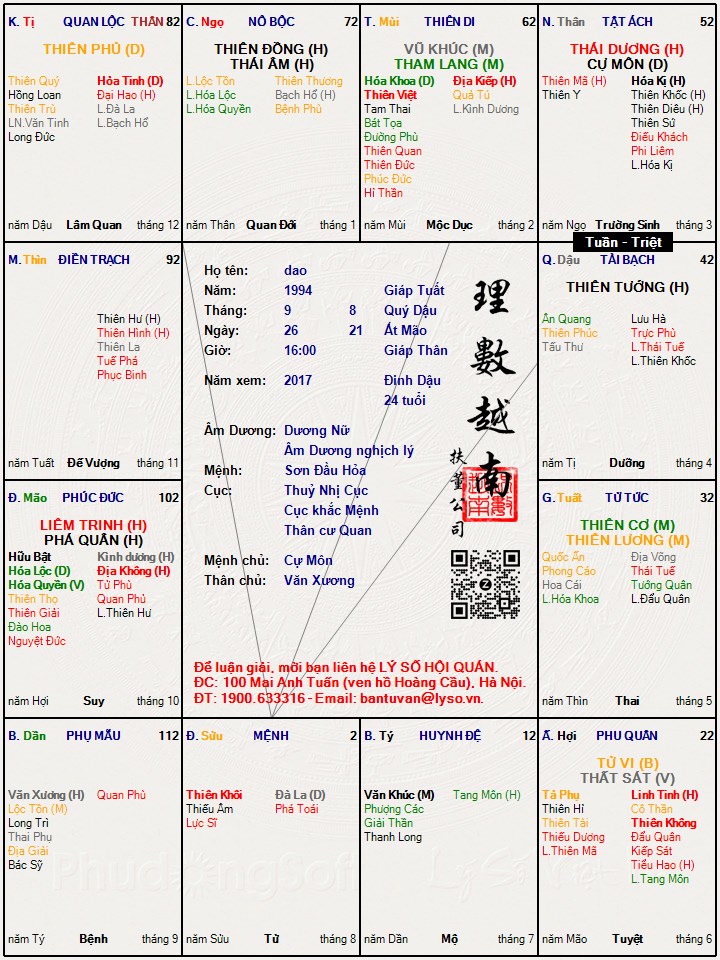 K. Tị QUAN LỘC THÂN 82
THIÊN PHỦ (D)
Thiên Quý Hỏa Tinh (D)
Hồng Loan Đại Hao (H)
Thiên Trù L.Đà La
LN.Văn Tinh L.Bạch Hổ
Long Đức
năm Dậu Lâm Quan tháng 12
C. Ngọ NÔ BỘC 72
THIÊN ĐỒNG (H)
THÁI ÂM (H)
L.Lộc Tồn Thiên Thương
L.Hóa Lộc Bạch Hổ (H)
L.Hóa Quyền Bệnh Phù
năm Thân Quan Đới tháng 1
T. Mùi THIÊN DI 62
VŨ KHÚC (M)
THAM LANG (M)
Hóa Khoa (D) Địa Kiếp (H)
Thiên Việt Quả Tú
Tam Thai L.Kình Dương
Bát Tọa
Đường Phù
Thiên Quan
Thiên Đức
Phúc Đức
Hỉ Thần
năm Mùi Mộc Dục tháng 2
N. Thân TẬT ÁCH 52
THÁI DƯƠNG (H)
CỰ MÔN (D)
Thiên Mã (H) Hóa Kị (H)
Thiên Y Thiên Khốc (H)
Thiên Diêu (H)
Thiên Sứ
Điếu Khách
Phi Liêm
L.Hóa Kị
năm Ngọ Trường Sinh tháng 3
Tuần - Triệt
M. Thìn ĐIỀN TRẠCH 92
Thiên Hư (H)
Thiên Hình (H)
Thiên La
Tuế Phá
Phục Binh
năm Tuất Đế Vượng tháng 11
Họ tên: dao
Năm: 1994 Giáp Tuất
Tháng: 9 8 Quý Dậu
Ngày: 26 21 Ất Mão
Giờ: 16:00 Giáp Thân
Năm xem: 2017 Đinh Dậu
24 tuổi
Âm Dương: Dương Nữ
Âm Dương nghịch lý
Mệnh: Sơn Đầu Hỏa
Cục: Thuỷ Nhị Cục
Cục khắc Mệnh
Thân cư Quan
Mệnh chủ: Cự Môn
Thân chủ: Văn Xương
理數越南
扶董公司
Để luận giải, mời bạn liên hệ LÝ SỐ HỘI QUÁN.
ĐC: 100 Mai Anh Tuấn (ven hồ Hoàng Cầu), Hà Nội.
ĐT: 1900.633316 - Email: bantuvan@lyso.vn.
Q. Dậu TÀI BẠCH 42
THIÊN TƯỚNG (H)
Ân Quang Lưu Hà
Thiên Phúc Trực Phù
Tấu Thư L.Thái Tuế
L.Thiên Khốc
năm Tị Dưỡng tháng 4
Đ. Mão PHÚC ĐỨC 102
LIÊM TRINH (H)
PHÁ QUÂN (H)
Hữu Bật Kình dương (H)
Hóa Lộc (D) Địa Không (H)
Hóa Quyền (V) Tử Phù
Thiên Thọ Quan Phủ
Thiên Giải L.Thiên Hư
Đào Hoa
Nguyệt Đức
năm Hợi Suy tháng 10
G. Tuất TỬ TỨC 32
THIÊN CƠ (M)
THIÊN LƯƠNG (M)
Quốc Ấn Địa Võng
Phong Cáo Thái Tuế
Hoa Cái Tướng Quân
L.Hóa Khoa L.Đẩu Quân
năm Thìn Thai tháng 5
B. Dần PHỤ MẪU 112
Văn Xương (H) Quan Phù
Lộc Tồn (M)
Long Trì
Thai Phụ
Địa Giải
Bác Sỹ
năm Tý Bệnh tháng 9
Đ. Sửu MỆNH 2
Thiên Khôi Đà La (D)
Thiếu Âm Phá Toái
Lực Sĩ
năm Sửu Tử tháng 8
B. Tý HUYNH ĐỆ 12
Văn Khúc (M) Tang Môn (H)
Phượng Các
Giải Thần
Thanh Long
năm Dần Mộ tháng 7
Ấ. Hợi PHU QUÂN 22
TỬ VI (B)
THẤT SÁT (V)
Tả Phụ Linh Tinh (H)
Thiên Hỉ Cô Thần
Thiên Tài Thiên Không
Thiếu Dương Đẩu Quân
L.Thiên Mã Kiếp Sát
Tiểu Hao (H)
L.Tang Môn
năm Mão Tuyệt tháng 6